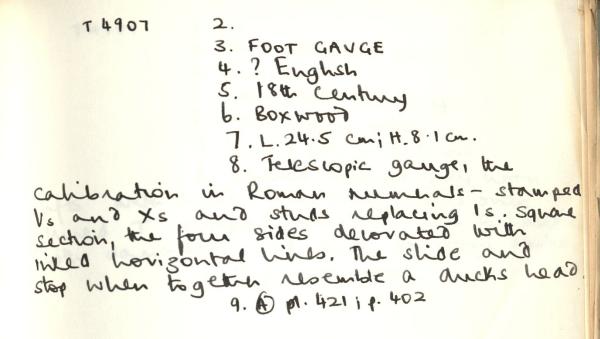 T 4907 2.
3. FOOT GAUGE
4. ? English
5. 18th Century
6. Boxwood
7. L. 24.5 cm; H. 8.1 cm.
8. Telescopic gauge, the
calibration in Roman numerals - stamped
Vs and Xs and studs replacing 1s. Square
section, the four sides decorated with
inked horizontal lines. The slide and
stop when together resemble a ducks head.
9. A pl. 421; p. 402